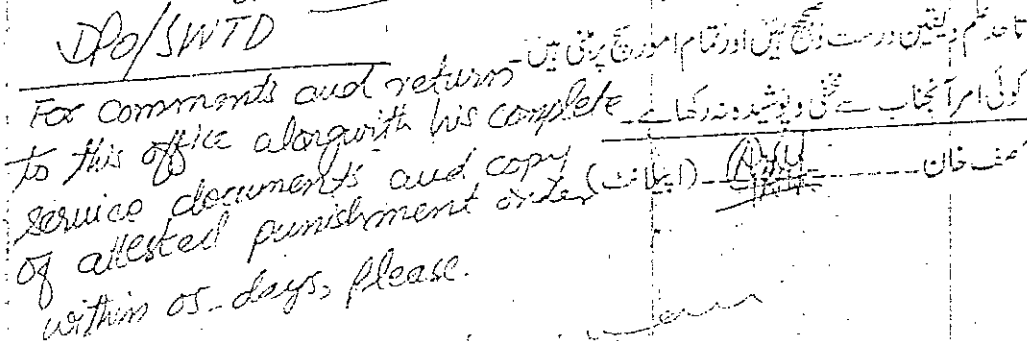 DPO/SWTD
For comments and return
to this office alongwith his complete
service documents and copy
of attested punishment order
within 05-days, please.
تاحد علم ویقین درست وصحیح ہیں اور تمام امور سچ پر مبنی ہیں۔
کوئی امر آنجناب سے مخفی و پوشیدہ نہ رکھا ہے۔
صف خان (اپیلانٹ)